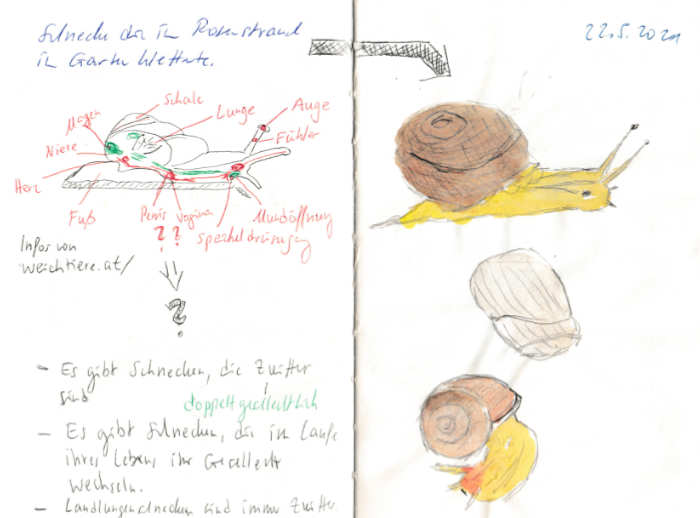 Schnecke die im Rosenstrand
im Garten
22.5.2021
Schale
Lunge
Auge
Fühler
Magen
Niere
Herz
Fuß
Penis
Vagina
Mundöffnung
? ?
Infos von
weichtiere.at/
?
- Es gibt Schnecken, die Zwitter
sind
doppeltgeschlechtlich
- Es gibt Schnecken, die im Laufe
ihres Lebens ihr Geschlecht
wechseln.
- Landlungenschnecken sind immer Zwitter.